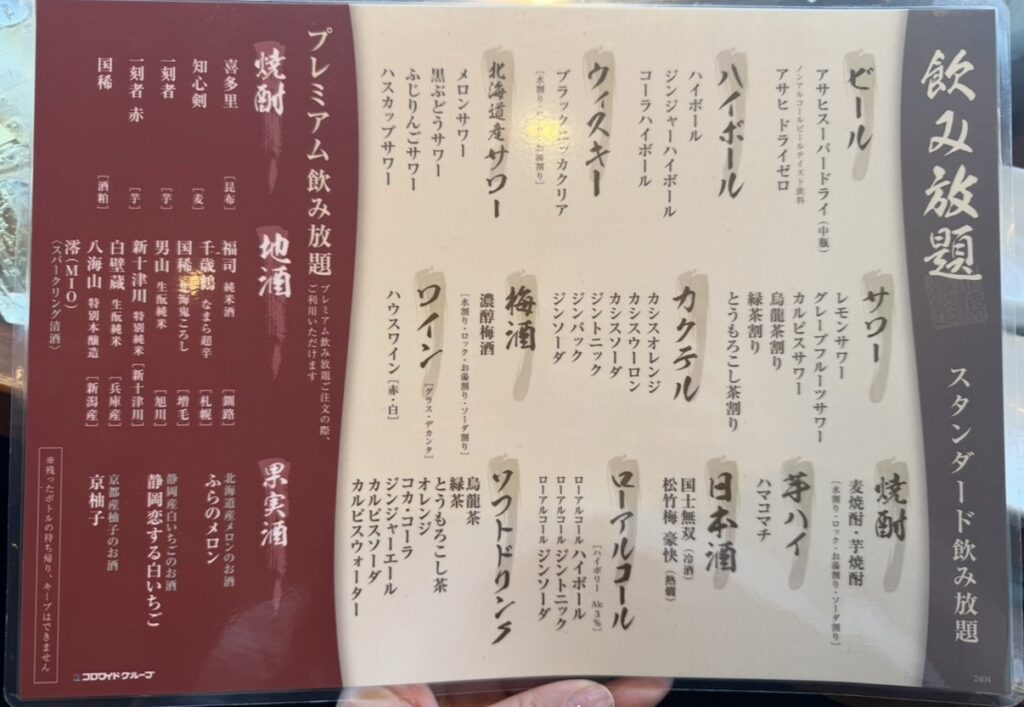 飲み放題
スタンダード飲み放題
ビール
アサヒスーパードライ(中瓶)
ノンアルコールビールテイスト飲料
アサヒ ドライゼロ
ハイボール
ハイボール
ジンジャーハイボール
コーラハイボール
ウィスキー
ブラックニッカクリア
北海道産サワー
メロンサワー
黒ぶどうサワー
ふじりんごサワー
ハスカップサワー
サワー
レモンサワー
グレープフルーツサワー
カルピスサワー
烏龍茶割り
緑茶割り
とうもろこし茶割り
カクテル
カシスオレンジ
カシスウーロン
カシスソーダ
ジントニック
ジンバック
ジンソーダ
梅酒
濃醇梅酒
[水割り・ロック・お湯割り・ソーダ割り]
ワイン
[グラス・デカンタ]
ハウスワイン[赤・白]
焼酎
麦焼酎・芋焼酎
[水割り・ロック・お湯割り・ソーダ割り]
芋ハイ
ハマコマチ
日本酒
国士無双(冷酒)
松竹梅 豪快(熱燗)
ローアルコール
[ハイボリー Alc 3%]
ローアルコール ハイボール
ローアルコール ジントニック
ローアルコール ジンソーダ
ソフトドリンク
烏龍茶
緑茶
とうもろこし茶
オレンジ
コカ・コーラ
ジンジャーエール
カルピスソーダ
カルピスウォーター
プレミアム飲み放題
プレミアム飲み放題ご注文の際、
ご利用いただけます
焼酎
喜多里 [昆布]
知心剣 [麦]
一刻者 [芋]
一刻者 赤 [芋]
国稀 [酒粕]
地酒
福司 純米酒 [釧路]
千歳鶴 なまら超辛 [札幌]
国稀 北海鬼ころし [増毛]
男山 生酛純米 [旭川]
新十津川 特別純米 [新十津川]
白壁蔵 生酛純米 [兵庫産]
八海山 特別本醸造 [新潟産]
澪(MIO)
(スパークリング清酒)
果実酒
北海道産メロンのお酒
ふらのメロン
静岡産白いちごのお酒
静岡恋する白いちご
京都産柚子のお酒
京柚子
※残ったボトルの持ち帰り、キープはできません
コロワイドグループ
2404